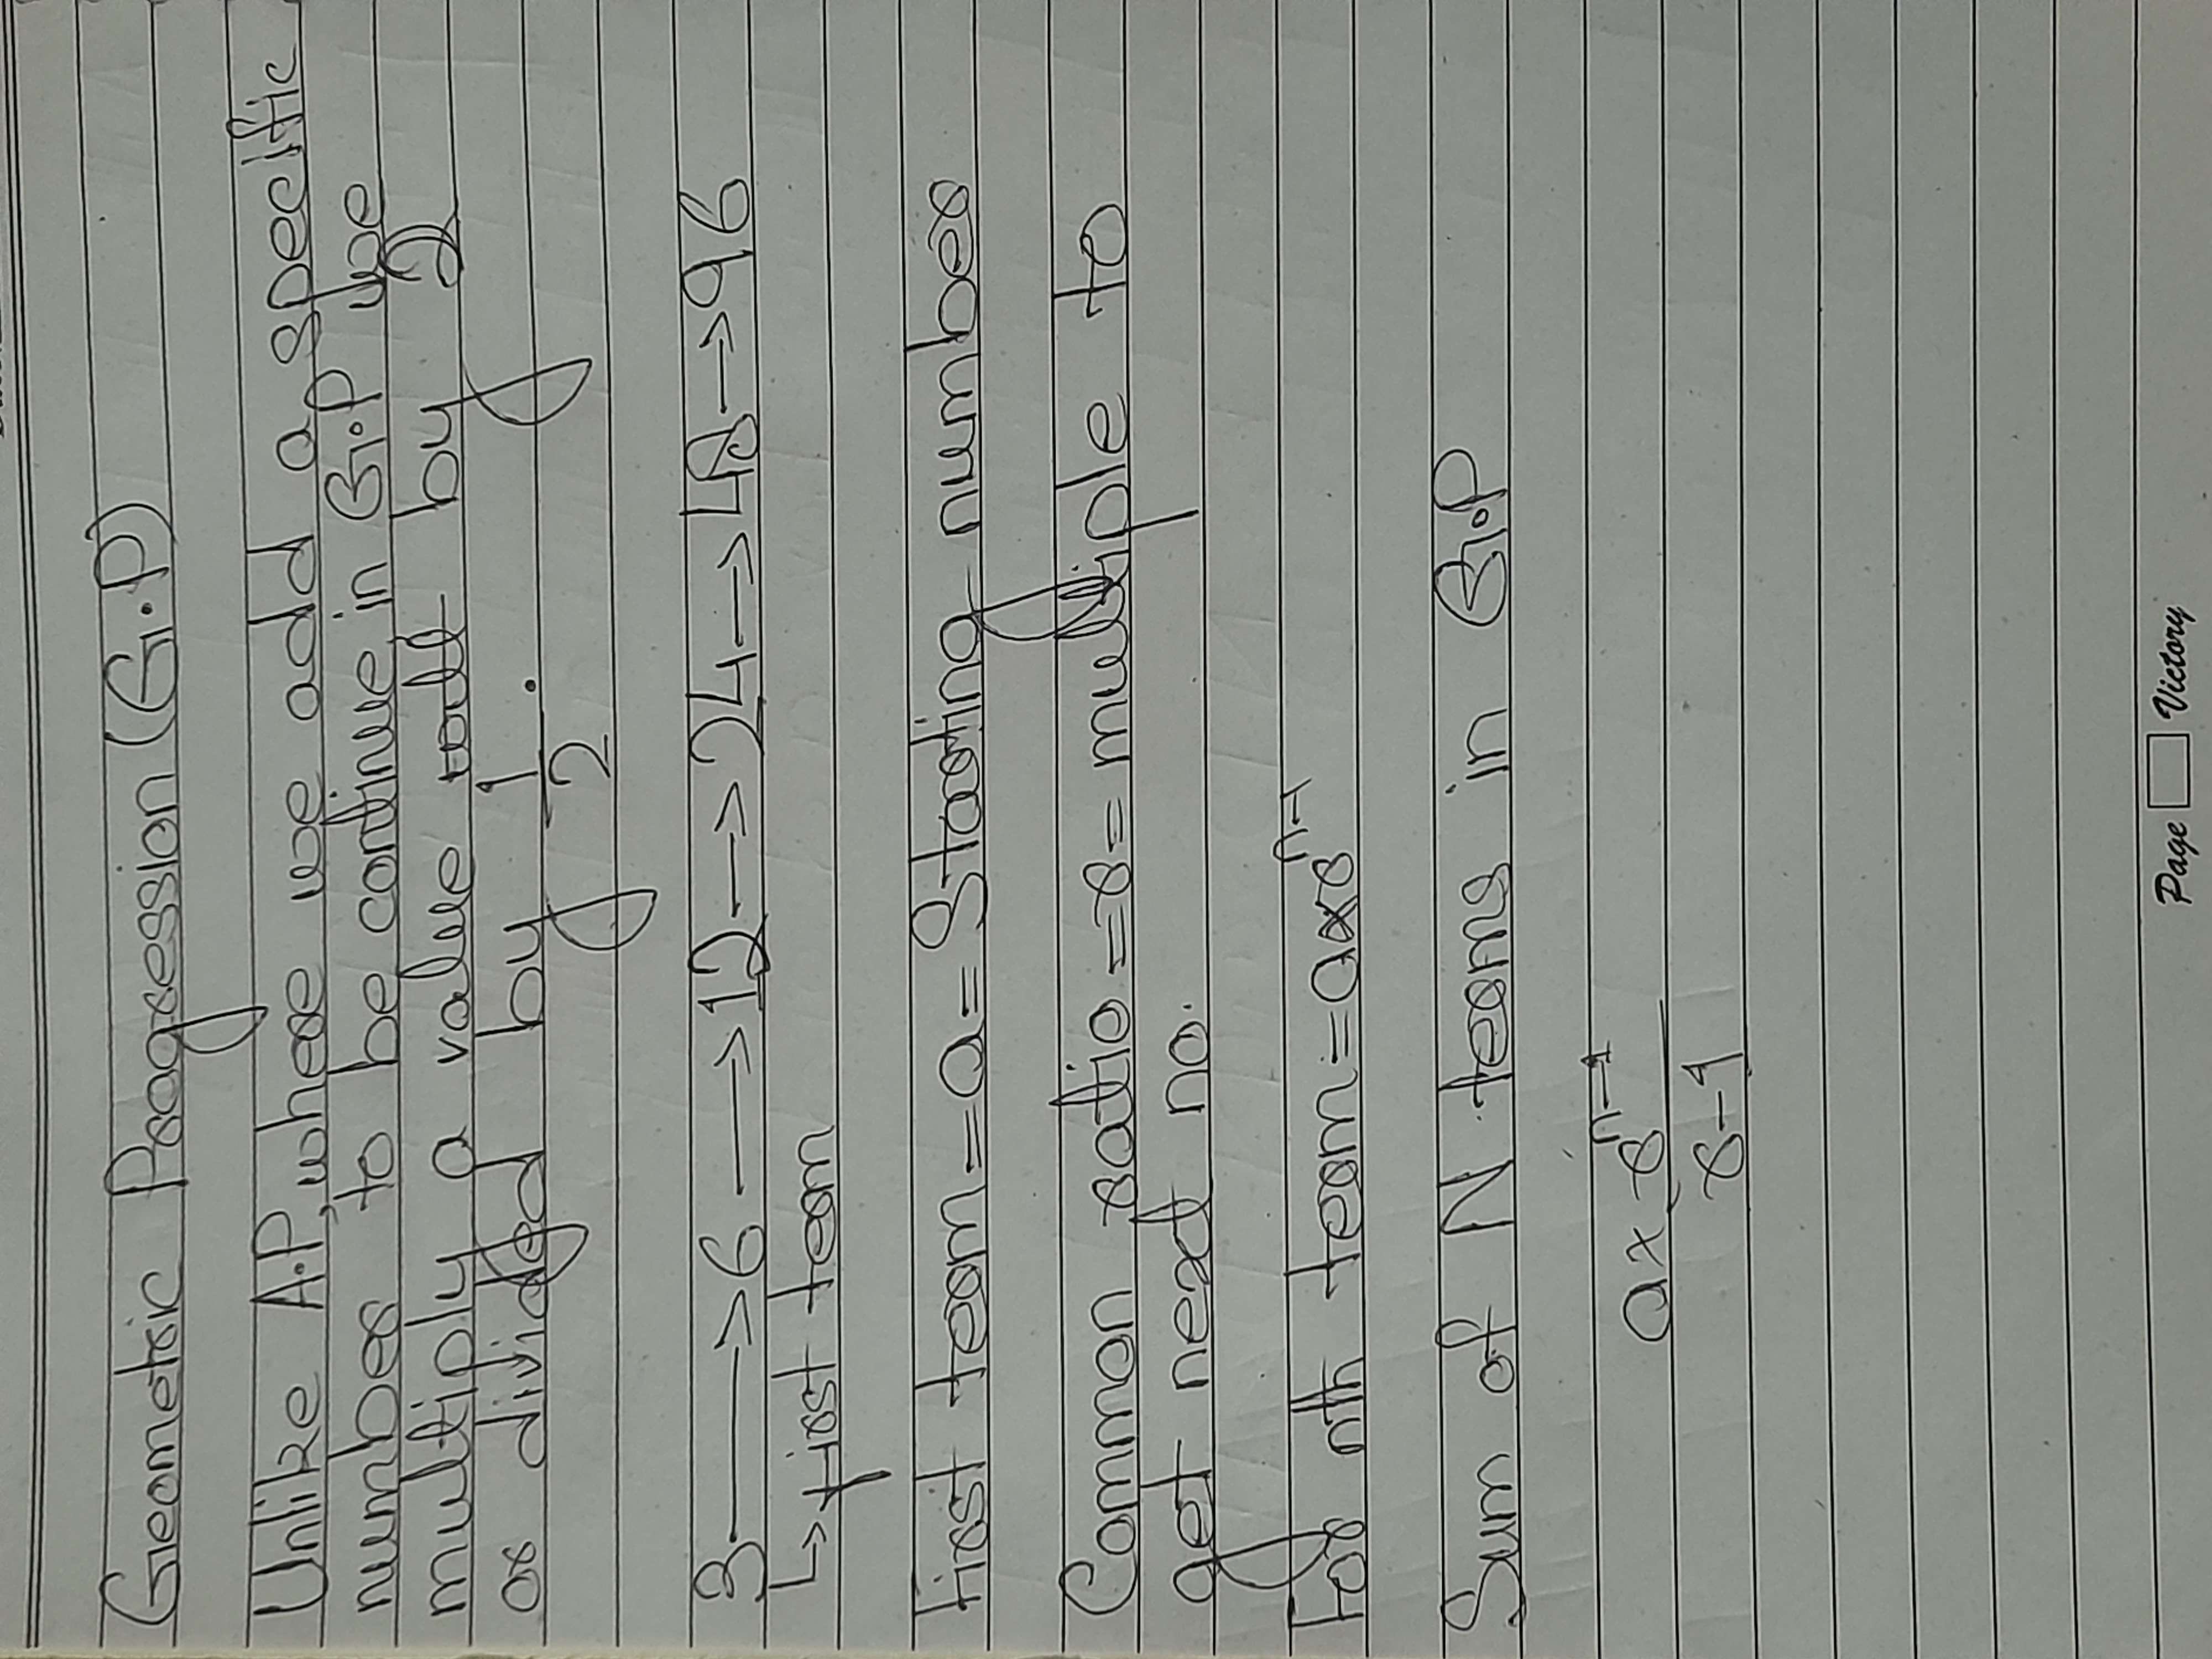 Geometric Progression (G.P)
Unlike A.P, where we add a specific
number to be continue, in G.P we
multiply a value by 2
or divided by 1/2.
3 → 6 → 12 → 24 → 48 → 96
↳ first term
First term = a = Starting number
Common ratio = r = multiple to
get next no.
For nth term = a×r^n-1
Sum of N terms in G.P
a × r^n-1
r-1
Page Victory